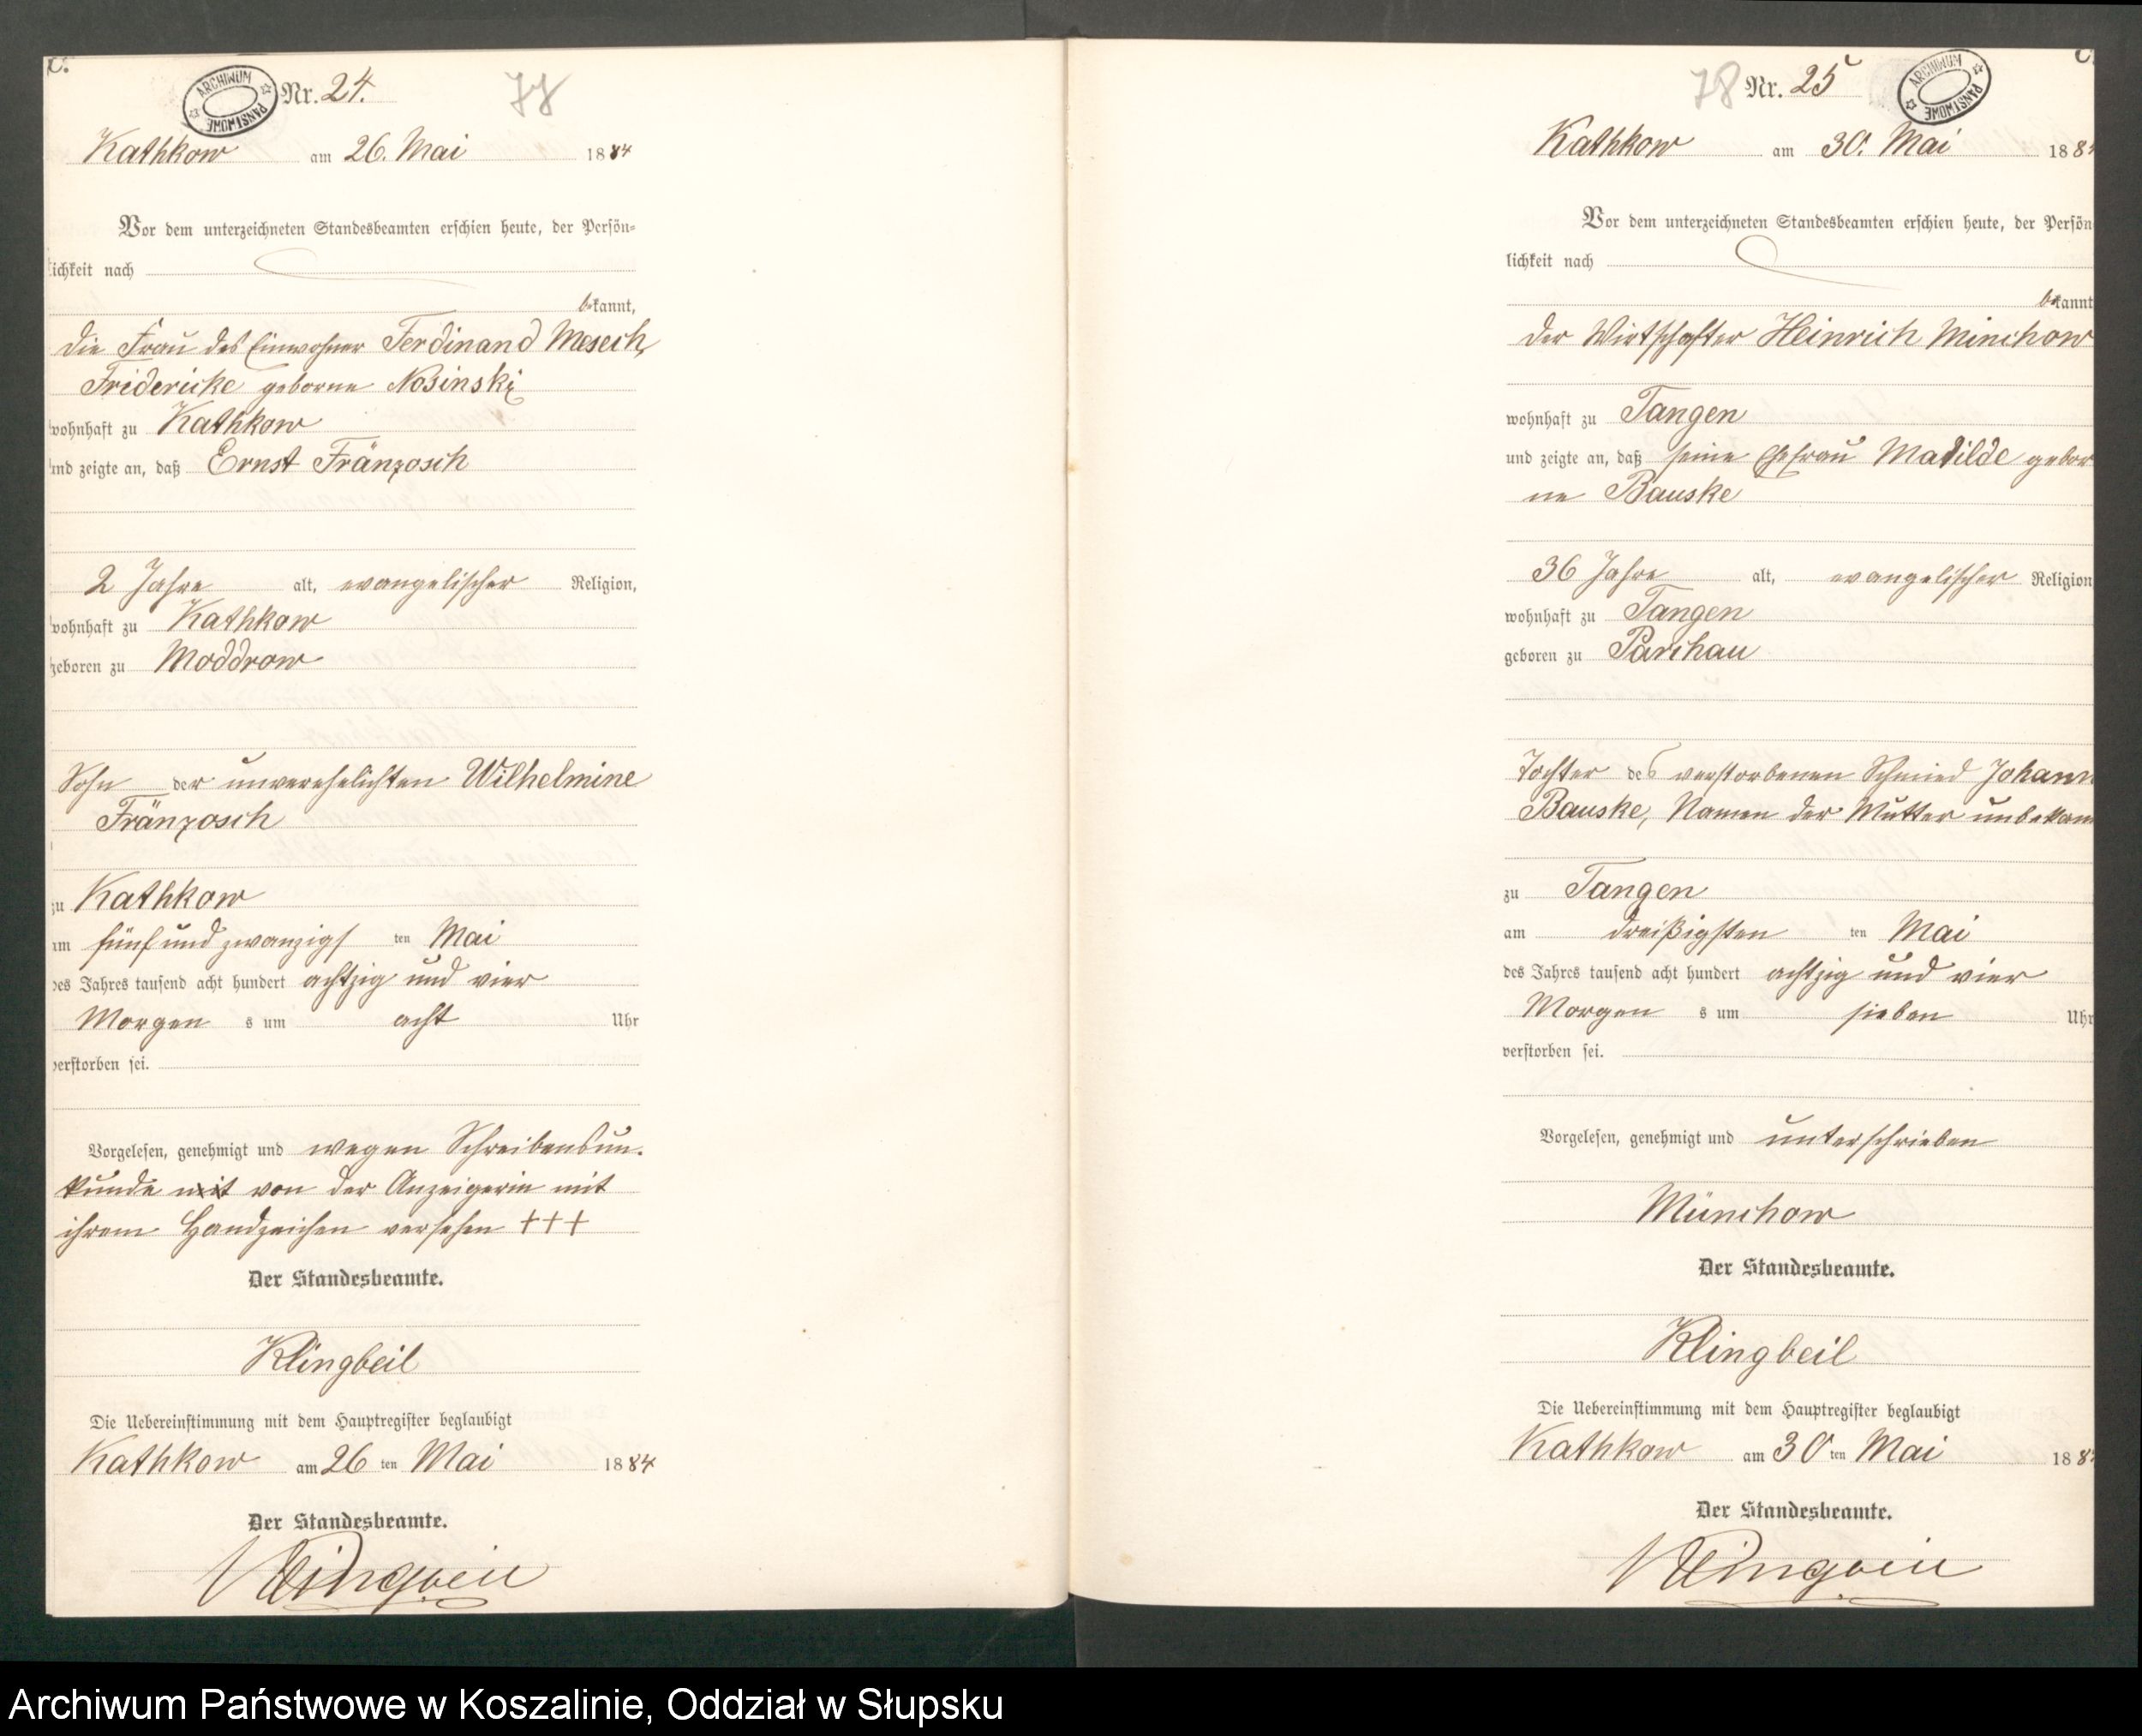 C.
ARCHIWUM PAŃSTWOWE
Nr. 24.
77
Kathkow am 26. Mai 1884
Vor dem unterzeichneten Standesbeamten erschien heute, der Persön-
lichkeit nach
bekannt,
die Frau des Einwohner Ferdinand Mesech,
Fridericke geborne Nosinski
wohnhaft zu Kathkow
und zeigte an, daß Ernst Fränzosch
2 Jahre alt, evangelischer Religion,
wohnhaft zu Kathkow
geboren zu Moddrow
Sohn der unverehelichten Wilhelmine
Fränzosch
zu Kathkow
am fünf und zwanzigsten Mai
des Jahres tausend acht hundert achtzig und vier
Morgens um acht Uhr
verstorben sei.
Vorgelesen, genehmigt und wegen Schreibensun-
kunde mit von der Anzeigerin mit
ihrem Handzeichen versehen +++
Der Standesbeamte.
Klingbeil
Die Uebereinstimmung mit dem Hauptregister beglaubigt
Kathkow am 26 ten Mai 1884
Der Standesbeamte.
Klingbeil
C.
78
Nr. 25
ARCHIWUM PAŃSTWOWE
Kathkow am 30. Mai 188
Vor dem unterzeichneten Standesbeamten erschien heute, der Persön
lichkeit nach
bekannt
der Wirtschafter Heinrich Minchow
wohnhaft zu Tangen
und zeigte an, daß seine Ehefrau Matilde gebor
ne Bauske
36 Jahre alt, evangelischer Religion
wohnhaft zu Tangen
geboren zu Parchau
Tochter des verstorbenen Schmied Johann
Bauske, Namen der Mutter unbekan
zu Tangen
am dreißigsten ten Mai
des Jahres tausend acht hundert achtzig und vier
Morgens um sieben Uhr
verstorben sei.
Vorgelesen, genehmigt und unterschrieben
Münchow
Der Standesbeamte.
Klingbeil
Die Uebereinstimmung mit dem Hauptregister beglaubigt
Kathkow am 30 ten Mai 188
Der Standesbeamte.
Klingbeil
Archiwum Państwowe w Koszalinie, Oddział w Słupsku